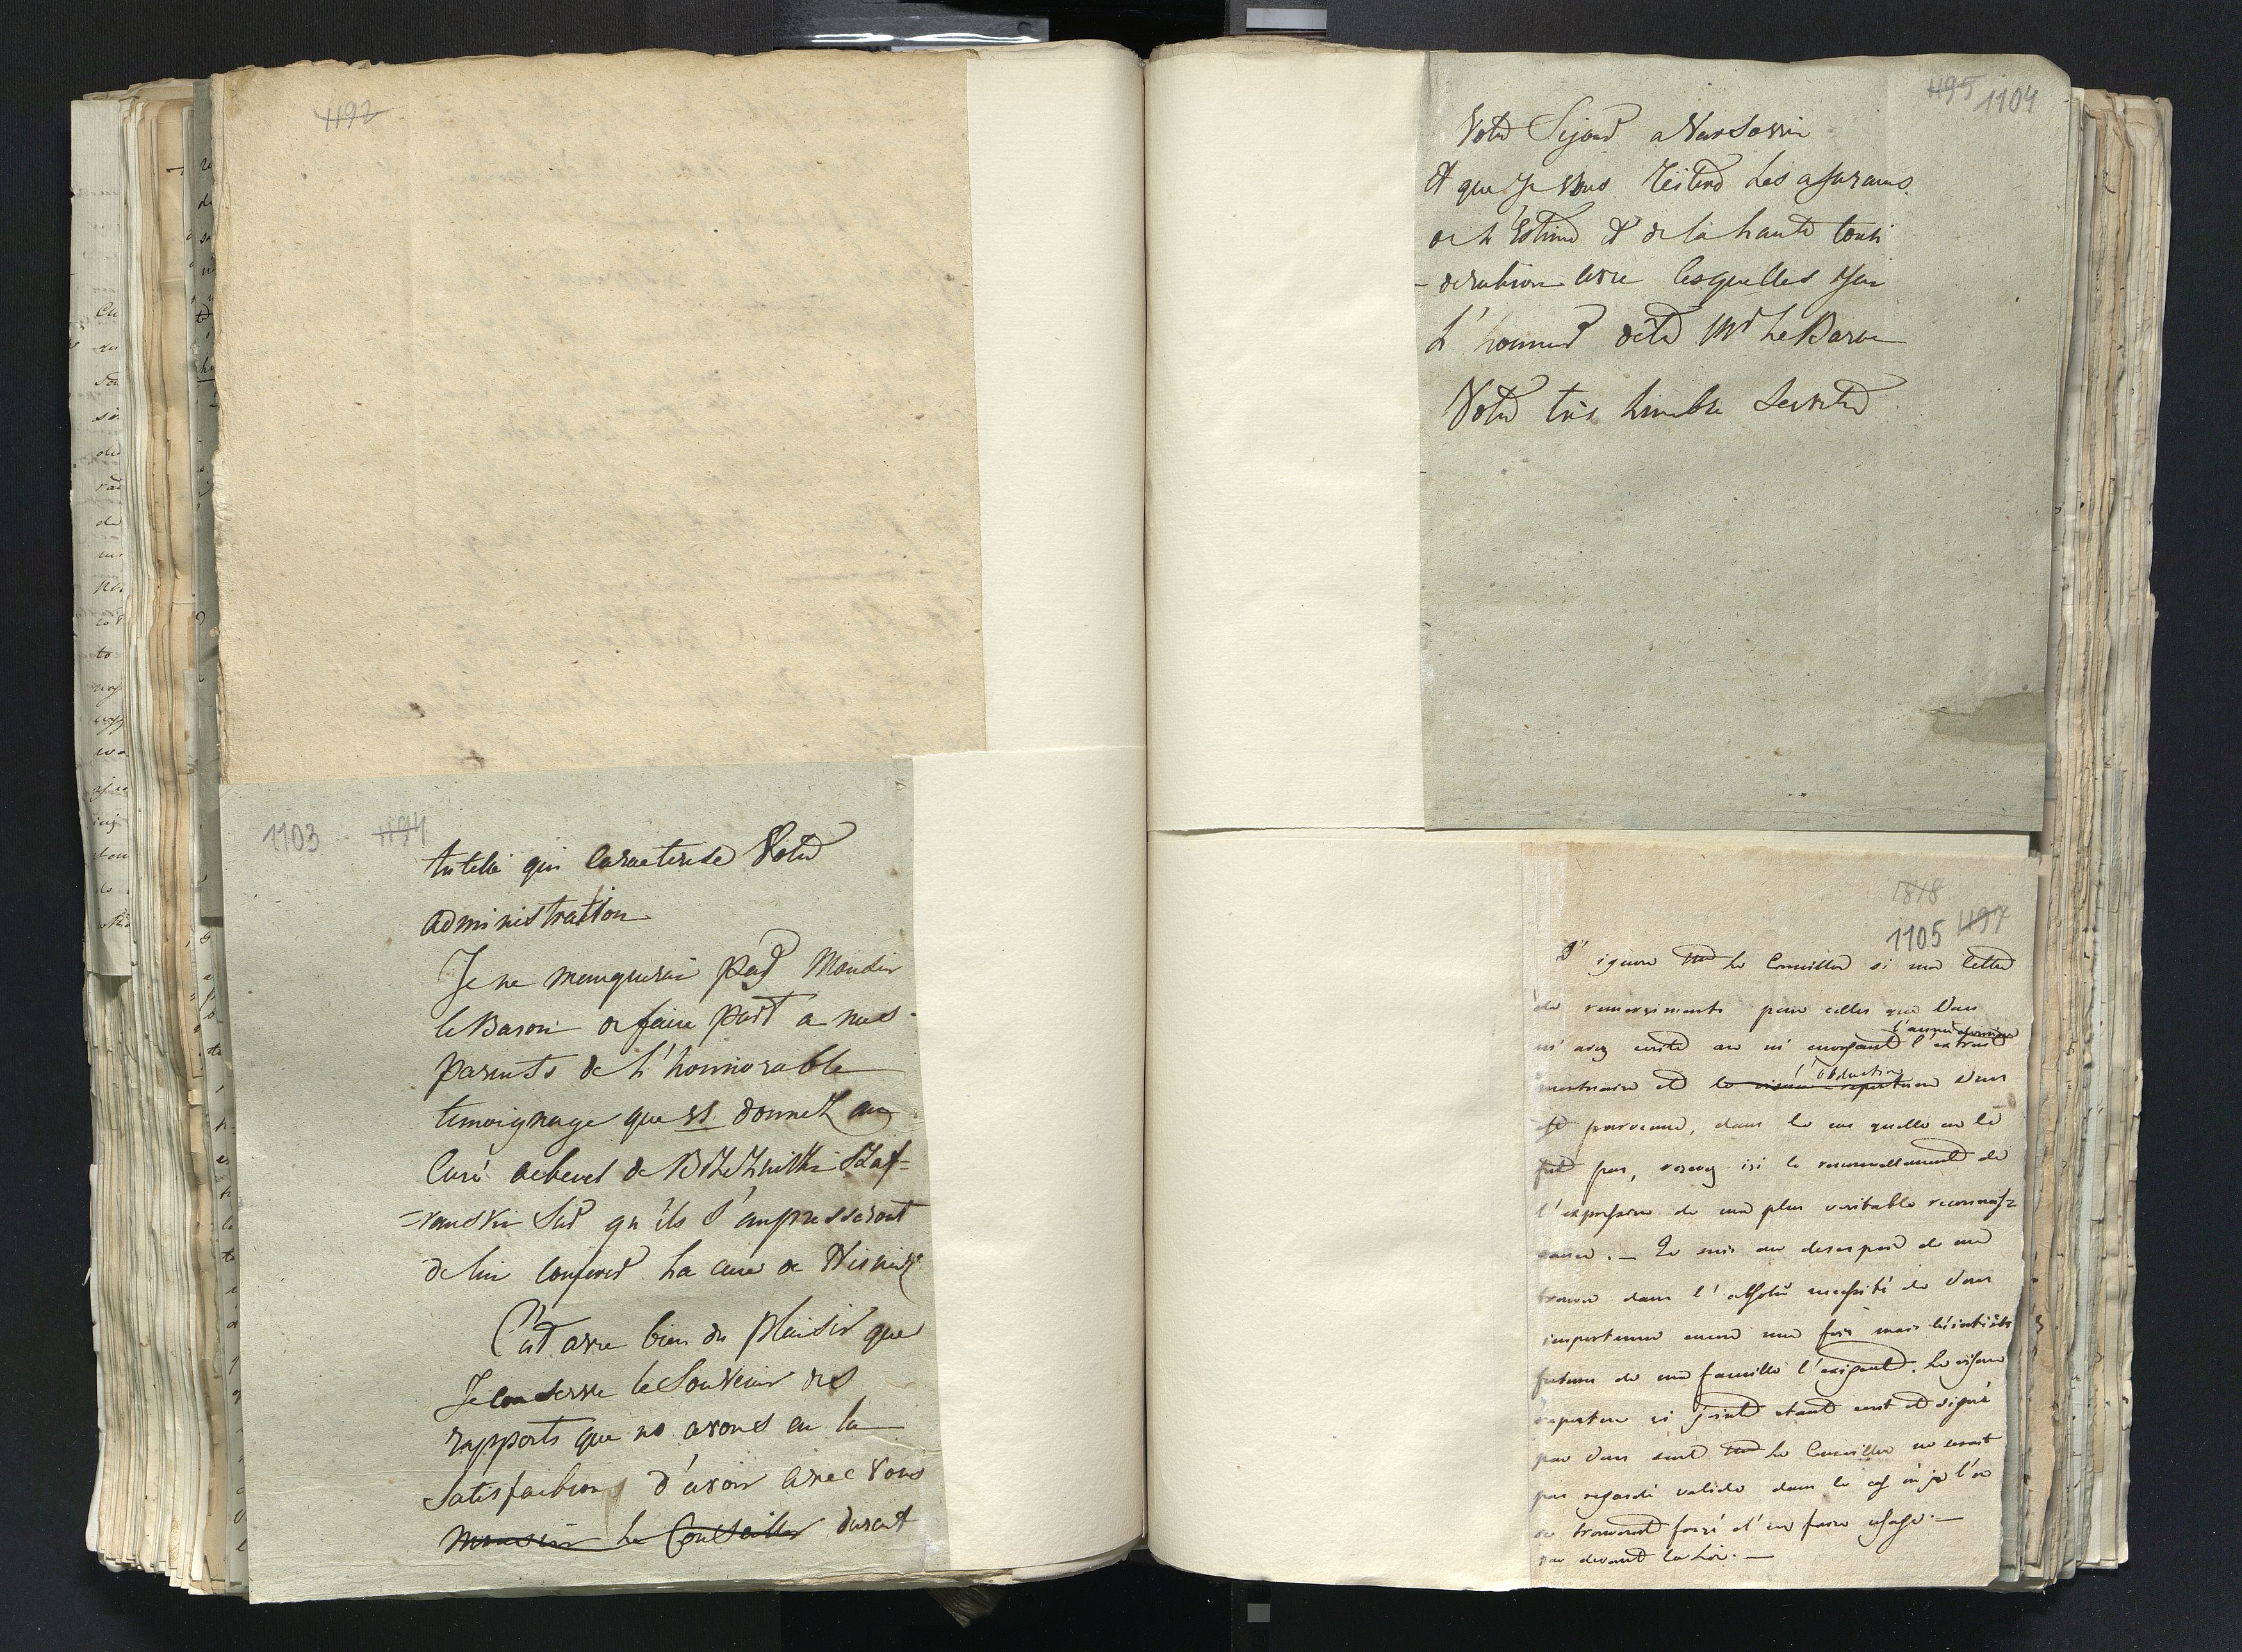 1192
1103 1194
tutelle qui caracterise Votre
administration
Je ne manquerai pas Monsieur
le Baron de faire part a mes
parents de L'honnorable
temoignage que vs donnez au
Curé actuel de
ranski Sur qu'ils s'empresseront
de lui conferer La cure de
C'est avec bien du plaisir que
Je conserve le Souvenir des
rapports que ns avons eu la
Satisfaction d'avoir avec vous
Monsieur Le Conseiller durant
1195 1104
Votre Sejour a Varsovie
Et que Je vous reitere Les assurances
de L'Estime Et de la haute consi
-deration avec lesquelles J'ai
L'honneur d'être Mr Le Baron
Votre très humble Serviteur
1818
1105 1197
J'ignore Mr le Conseiller si ma lettre
de remerciments pour celles que Vous
l'année derniere
m'avez ecrite en m'envoyant l'extrait
l'obduction
mortuaire et le visum repertum Vous
est parvenue, dans le cas qu'elle ne le
fut pas, recevez ici le renouvellement de
l'expression de ma plus veritable reconnaiss
sance. — Je suis au desespoir de me
trouver dans l'absolue necessité de Vous
importuner encore une fois mais les interêts
futurs de ma famille l'exigent. Le visum
repertum ci joint etant ecrit et signé
par Vous seul Mr le Conseiller ne serait
pas regardé valide dans le cas où je
me trouverait forcé d'en faire usage —
par devant la Loi. —